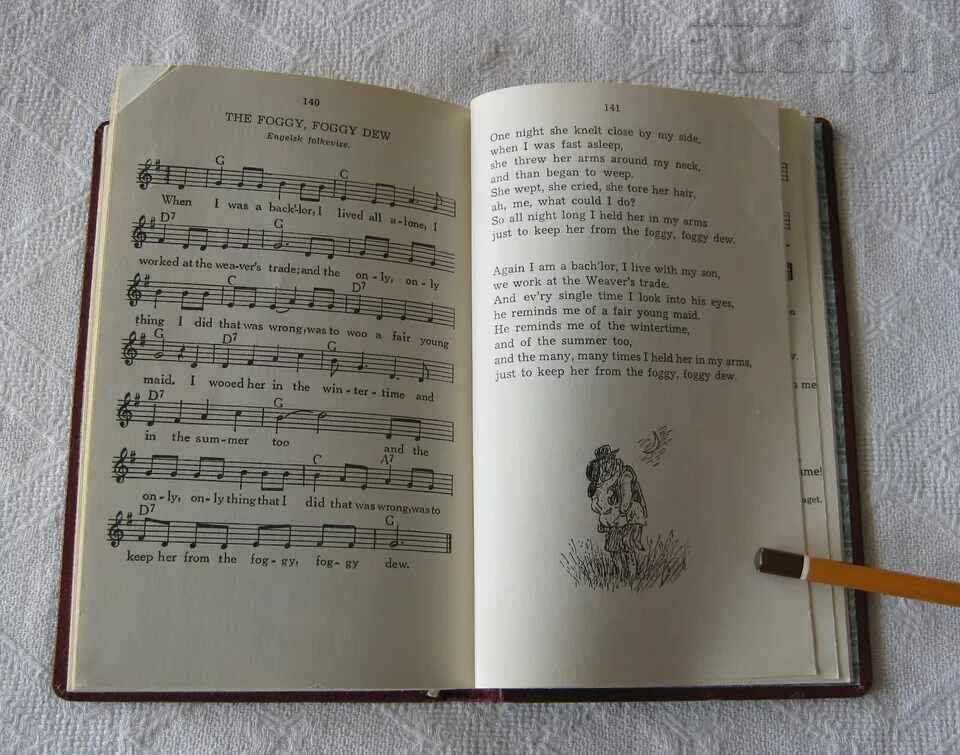 Auction
140
THE FOGGY, FOGGY DEW
Engelsk folkevise.
G C
When I was a back'lor, I lived all a-lone, I
D7 G
worked at the wea-ver's trade; and the on-ly, on-ly
C D7
thing I did that was wrong, was to woo a fair young
G D7 G
maid. I wooed her in the win-ter-time and
D7 G
in the sum-mer too and the
C A7
on-ly, on-ly thing that I did that was wrong, was to
D7 G
keep her from the fog-gy, fog-gy dew.
141
One night she knelt close by my side,
when I was fast asleep,
she threw her arms around my neck,
and than began to weep.
She wept, she cried, she tore her hair,
ah, me, what could I do?
So all night long I held her in my arms
just to keep her from the foggy, foggy dew.
Again I am a bach'lor, I live with my son,
we work at the Weaver's trade.
And ev'ry single time I look into his eyes,
he reminds me of a fair young maid.
He reminds me of the wintertime,
and of the summer too,
and the many, many times I held her in my arms,
just to keep her from the foggy, foggy dew.
me